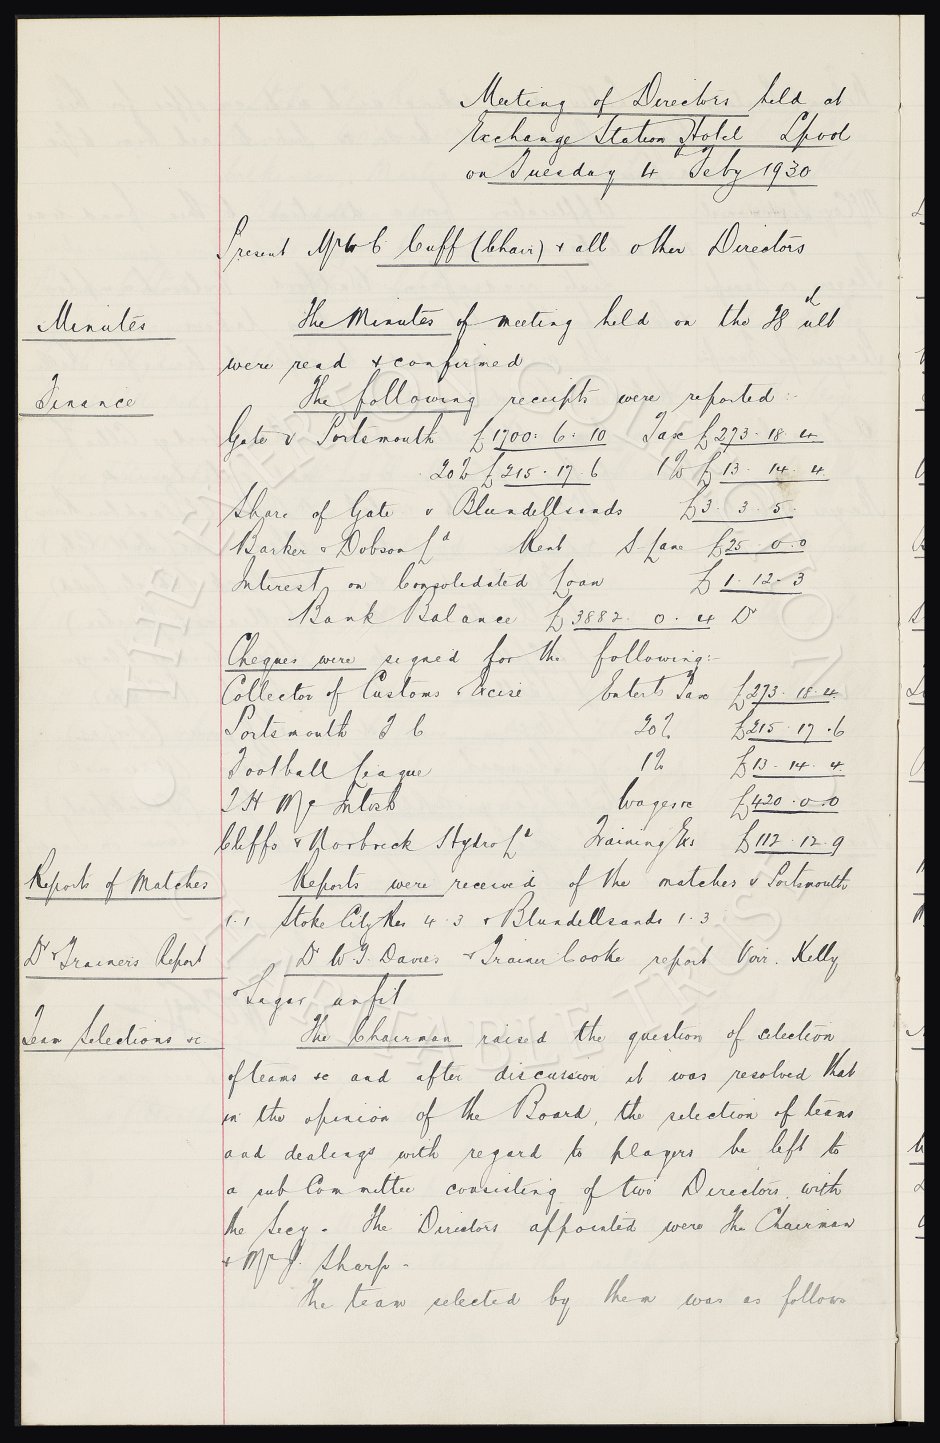 Meeting of Directors held at
Exchange Station Hotel Lpool
on Tuesday 4 Feby 1930
Present Mr W C Cuff (Chair) & all other Directors
Minutes
The Minutes of meeting held on the 28th ult
were read & confirmed
Finance
The following receipts were reported :-
Gate v Portsmouth £1700: 6: 10 Tax £273. 18. 4
20% £215. 17. 6 1% £13. 14. 4
Share of Gate v Blundellsands £3. 3. 5.
Barker & Dobson Ld Rent S. Lane £25. 0. 0
Interest on Consolidated Loan £1. 12. 3
Bank Balance £3882. 0. 4 Dr
Cheques were signed for the following:-
Collector of Customs & Excise Entert Tax £273. 18. 4.
Portsmouth F C 20% £215. 17. 6
Football League 1% £13. 14. 4
T H McIntosh Wages &c £420. 0. 0
Cliffs & Norbreck Hydro Ld Training Exs £112. 12. 9
Reports of Matches
Reports were received of the matches v Portsmouth
1.1 Stoke City Res 4.3 & Blundellsands 1.3
Dr & Trainers Report
Dr W. F. Davies & Trainer Cooke report Voir. Kelly
& Sagar unfit
Team Selections &c
The Chairman raised the question of selection
of teams &c and after discussion it was resolved that
in the opinion of the Board, the selection of teams
and dealings with regard to players be left to
a sub Committee consisting of two Directors, with
the Secy. The Directors appointed were The Chairman
& Mr J. Sharp.
The team selected by them was as follows
THE EVERTON COLLECTION
CHARITABLE TRUST